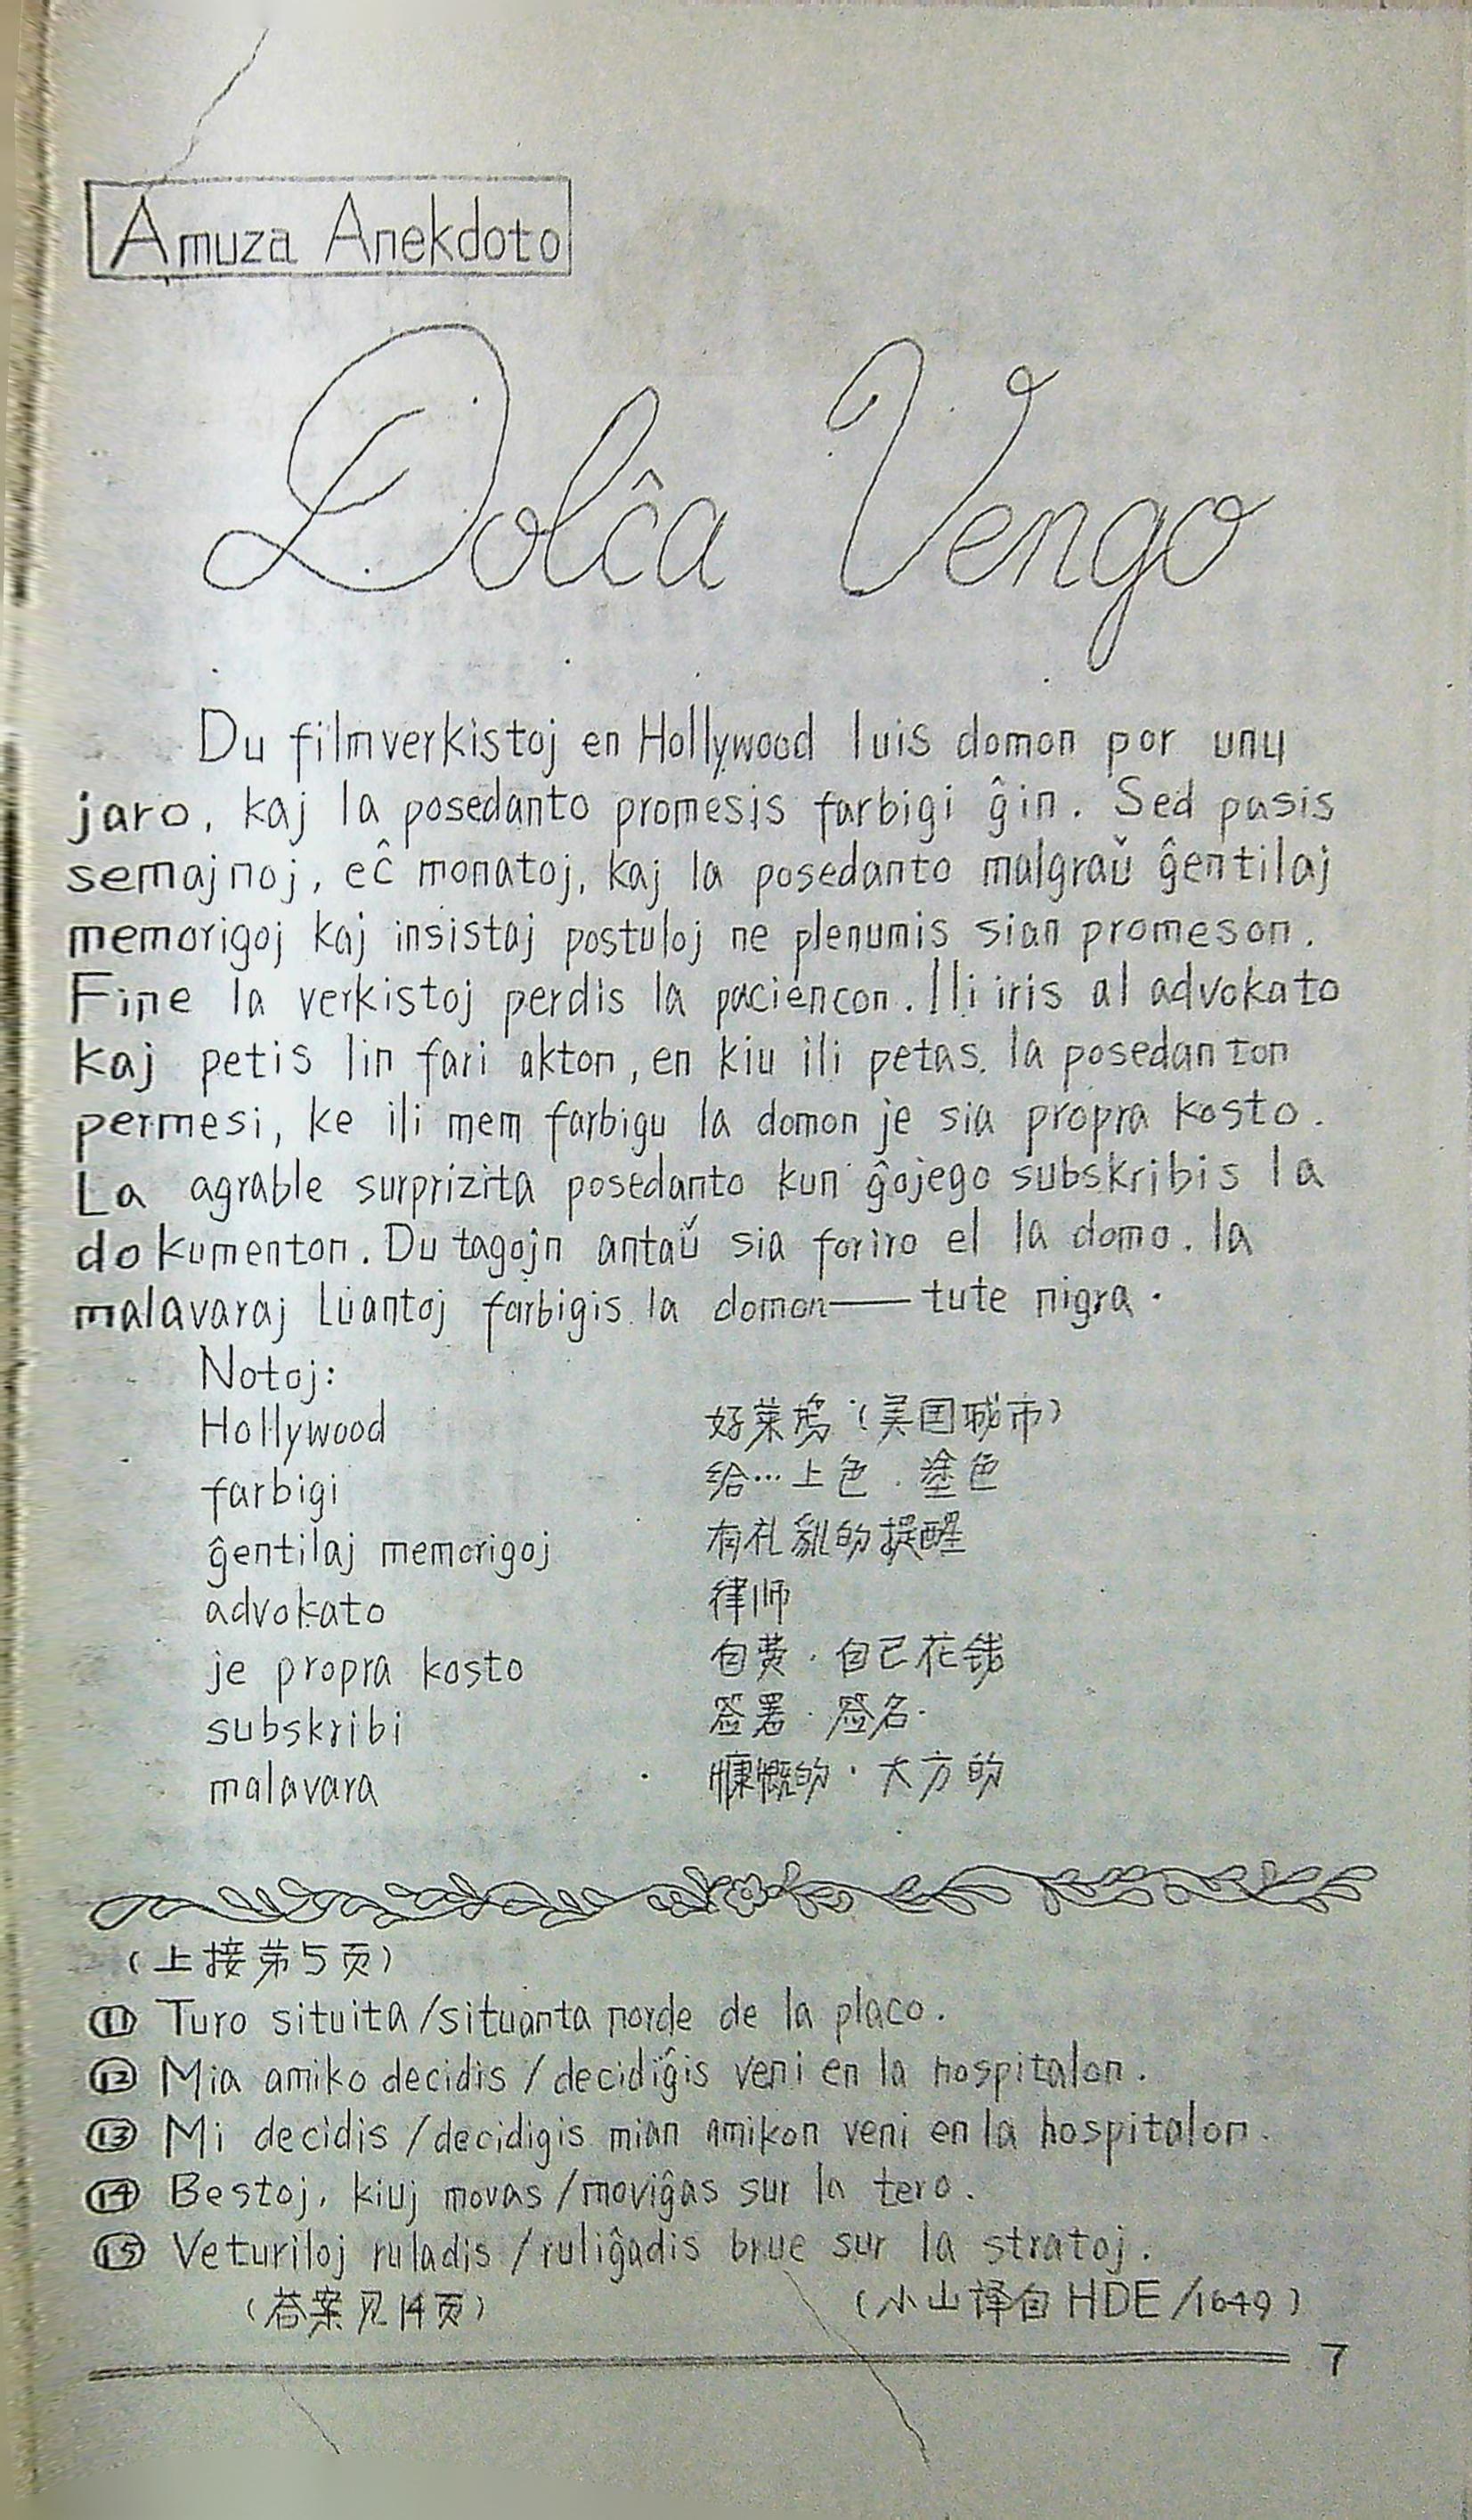 Amuza Anekdoto
Dolĉa Vengo
Du filmverkistoj en Hollywood luis domon por unu
jaro, kaj la posedanto promesis farbigi ĝin. Sed pasis
semajnoj, eĉ monatoj, kaj la posedanto malgraŭ ĝentilaj
memorigoj kaj insistaj postuloj ne plenumis sian promeson.
Fine la verkistoj perdis la paciencon. Ili iris al advokato
kaj petis lin fari akton, en kiu ili petas. la posedanton
permesi, ke ili mem farbigu la domon je sia propra kosto.
La agrable surprizita posedanto kun ĝojego subskribis la
dokumenton. Du tagojn antaŭ sia foriro el la domo. la
malavaraj Luantoj farbigis la domon——tute nigra.
Notoj:
Hollywood 好莱坞（美国城市）
farbigi 给…上色．塗色
ĝentilaj memorigoj 有礼貌的提醒
advokato 律师
je propra kosto 自费．自己花钱
subskribi 签署．签名．
malavara 慷慨的．大方的
（上接第5页）
⑪ Turo situita/situanta norde de la placo.
⑫ Mia amiko decidis/decidiĝis veni en la hospitalon.
⑬ Mi decidis/decidigis mian amikon veni en la hospitalon.
⑭ Bestoj, kiuj movas/moviĝas sur la tero.
⑮ Veturiloj ruladis/ruliĝadis brue sur la stratoj.
（答案见14页） （小山译自HDE/1649）
7